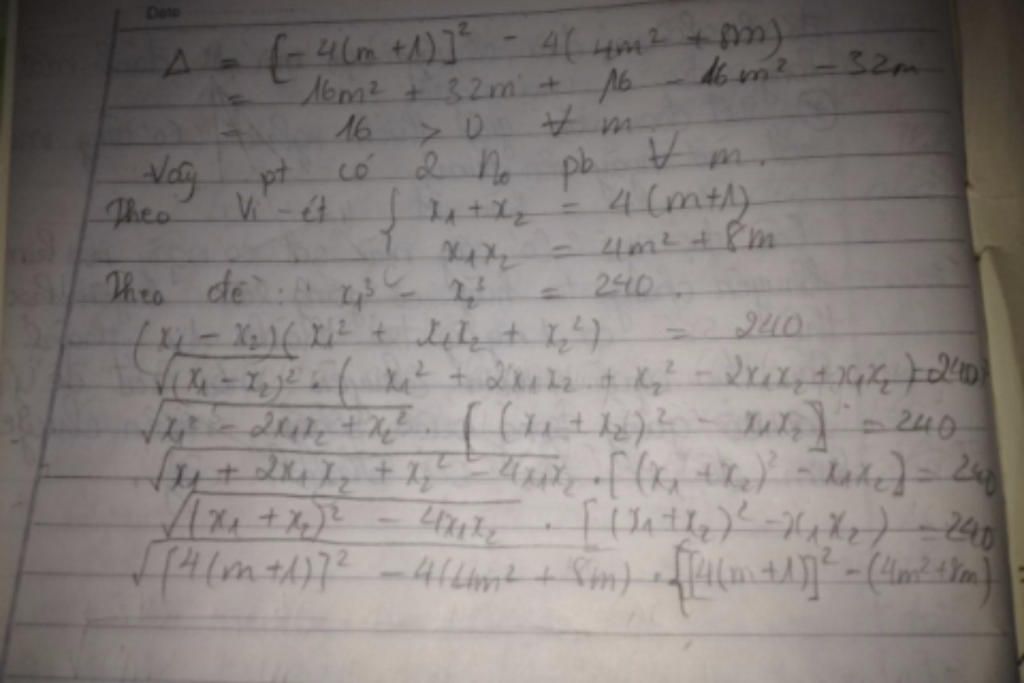 Date
Δ = [-4(m+1)]² - 4(4m² + 8m)
= 16m² + 32m + 16 - 16m² - 32m
= 16 > 0 ∀ m
Vậy pt có 2 no pb ∀ m.
Theo Vi-ét { x₁ + x₂ = 4(m+1)
x₁x₂ = 4m² + 8m
Theo đề : x₁³ - x₂³ = 240.
(x₁ - x₂)(x₁² + x₁x₂ + x₂²) = 240
√(x₁ - x₂)² . ( x₁² + 2x₁x₂ + x₂² - 2x₁x₂ + x₁x₂ ) = 240
√x₁² - 2x₁x₂ + x₂² . [ (x₁ + x₂)² - x₁x₂ ] = 240
√x₁ + 2x₁x₂ + x₂² - 4x₁x₂ . [(x₁ + x₂)² - x₁x₂] = 240
√(x₁ + x₂)² - 4x₁x₂ . [(x₁+x₂)² - x₁x₂) = 240
√[4(m+1)]² - 4(4m² + 8m) . {[4(m+1)]² - (4m²+8m)